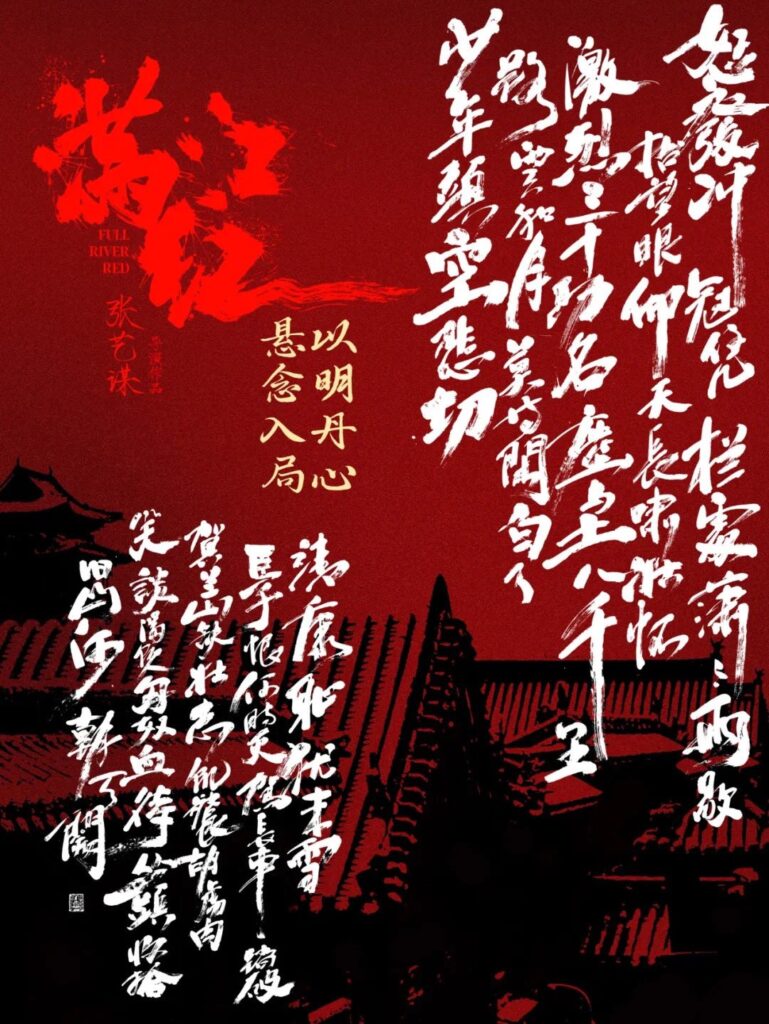 满江红
FULL
RIVER
RED
张艺谋
导演作品
以明丹心
悬念入局
怒發冲冠凭栏處潇潇雨歇
抬望眼仰天長啸壮怀
激烈三十功名塵土八千里
路雲和月莫等閑白了
少年頭空悲切
靖康耻犹未雪
臣子恨何時灭駕長車踏破
賀兰山缺壮志飢餐胡虏肉
笑談渴飲匈奴血待從頭收拾
旧山河朝天闕